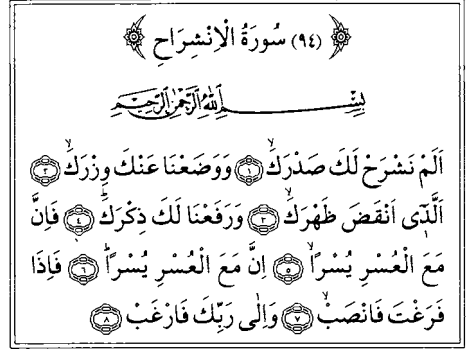 ﴿ (٩٤) سُورَةُ الْاِنْشِرَاحِ ﴾
بِسْمِ اللّٰهِ الرَّحْمٰنِ الرَّحِيمِ
اَلَمْ نَشْرَحْ لَكَ صَدْرَكَۙ ﴿١﴾ وَوَضَعْنَا عَنْكَ وِزْرَكَۙ ﴿٢﴾
اَلَّذٖٓى اَنْقَضَ ظَهْرَكَۙ ﴿٣﴾ وَرَفَعْنَا لَكَ ذِكْرَكَۜ ﴿٤﴾ فَاِنَّ
مَعَ الْعُسْرِ يُسْراًۙ ﴿٥﴾ اِنَّ مَعَ الْعُسْرِ يُسْراًۜ ﴿٦﴾ فَاِذَا
فَرَغْتَ فَانْصَبْۙ ﴿٧﴾ وَاِلٰى رَبِّكَ فَارْغَبْ ﴿٨﴾